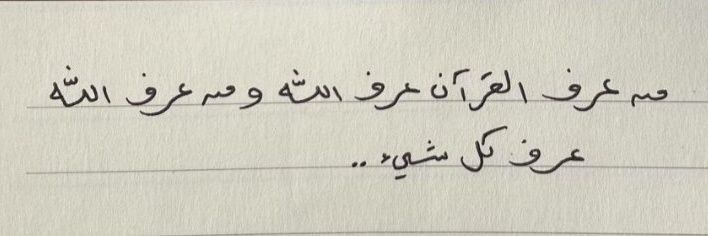 من عرف القرآن عرف الله ومن عرف الله
عرف كل شيء ..